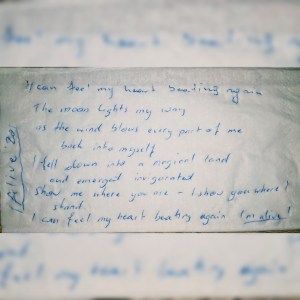 I can feel my heart beating again
The moon lights my way
as the wind blows every part of me
back into myself
I fell down into a magical land
and emerged invigorated
Show me where you are - I show you where I
stand.
I can feel my heart beating again I'm alive!
Alive